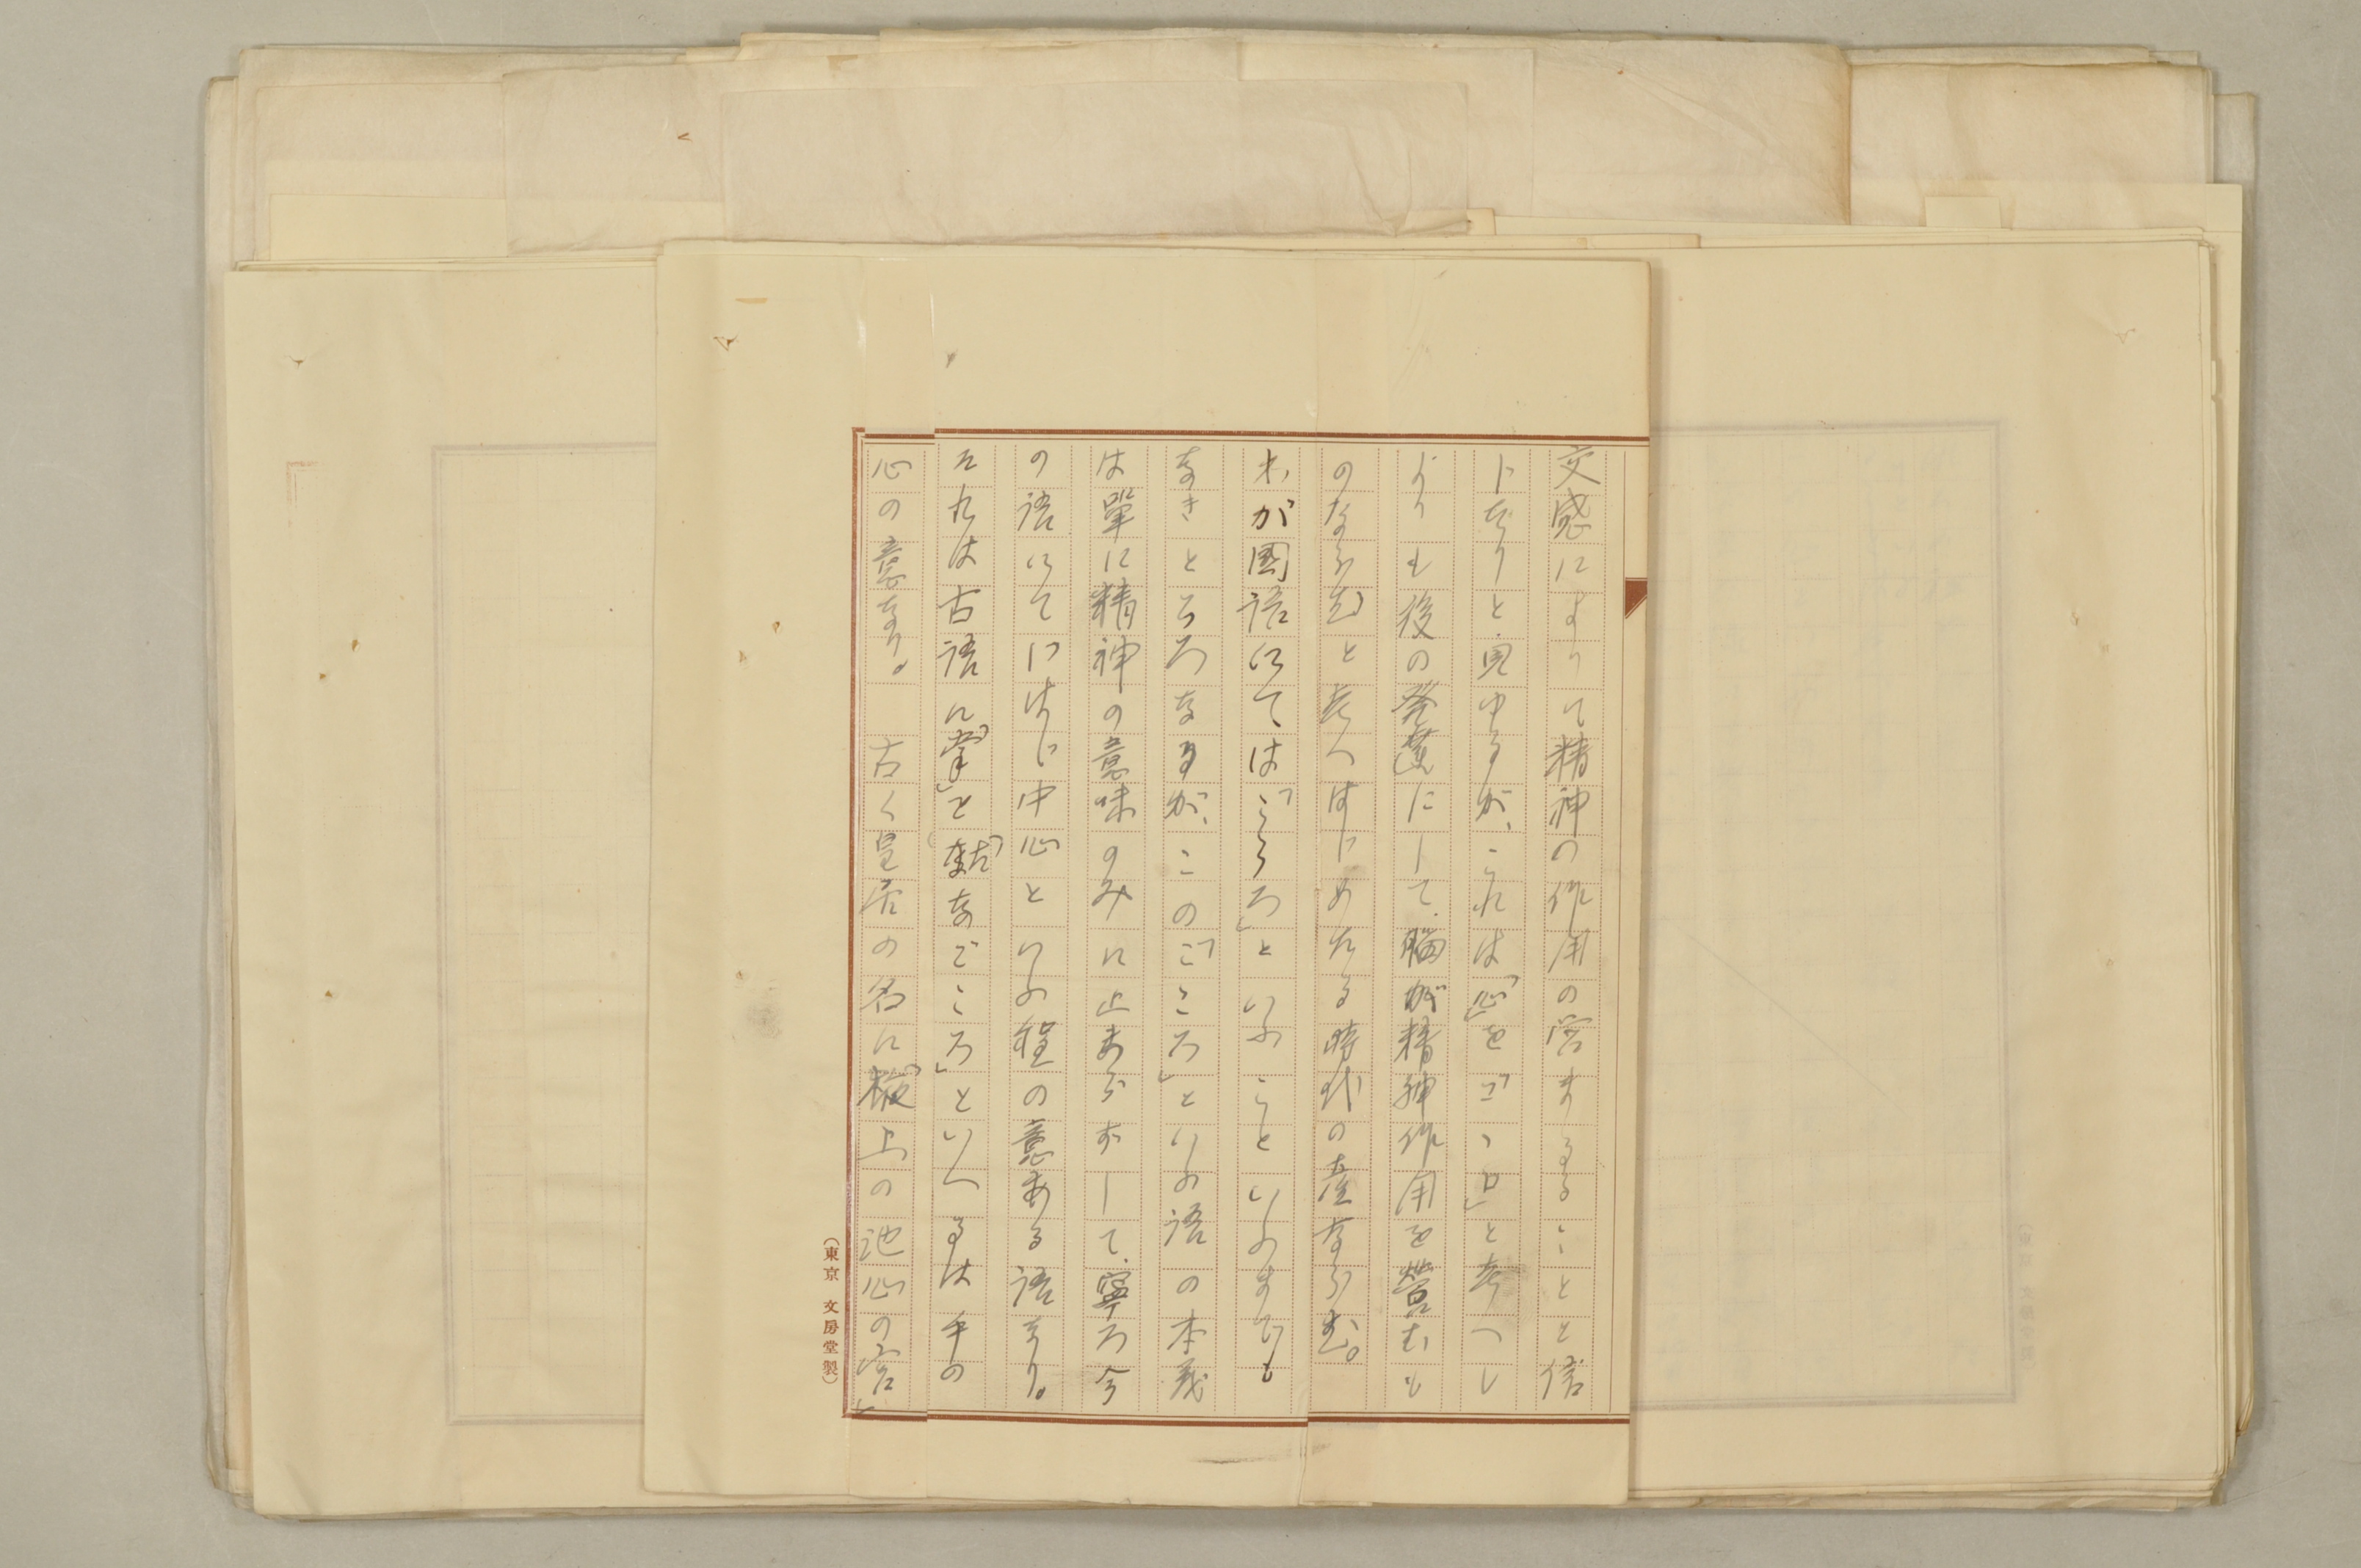 交感によりて精神の作用の営まるることと信
じたりと見ゆるが、これは「心」を「ココロ」と考へし
よりも後の発達にして、脳が精神作用を営むも
のならむと考へはじめたる時代の産ならむ。
わが國語にて、は「こゝろ」といふこといふまでも
なきところなるが、この「こころ」といふ語の本義
は單に精神の意味のみに止まらずして、寧ろ今
の語にていはば中心といふ程の意ある語なり。
それは古語に「掌」を「たなごころ」といへるは手の
心の意なり。 古く皇居の名に「掖上の池心の宮」
(東京 文房堂製)